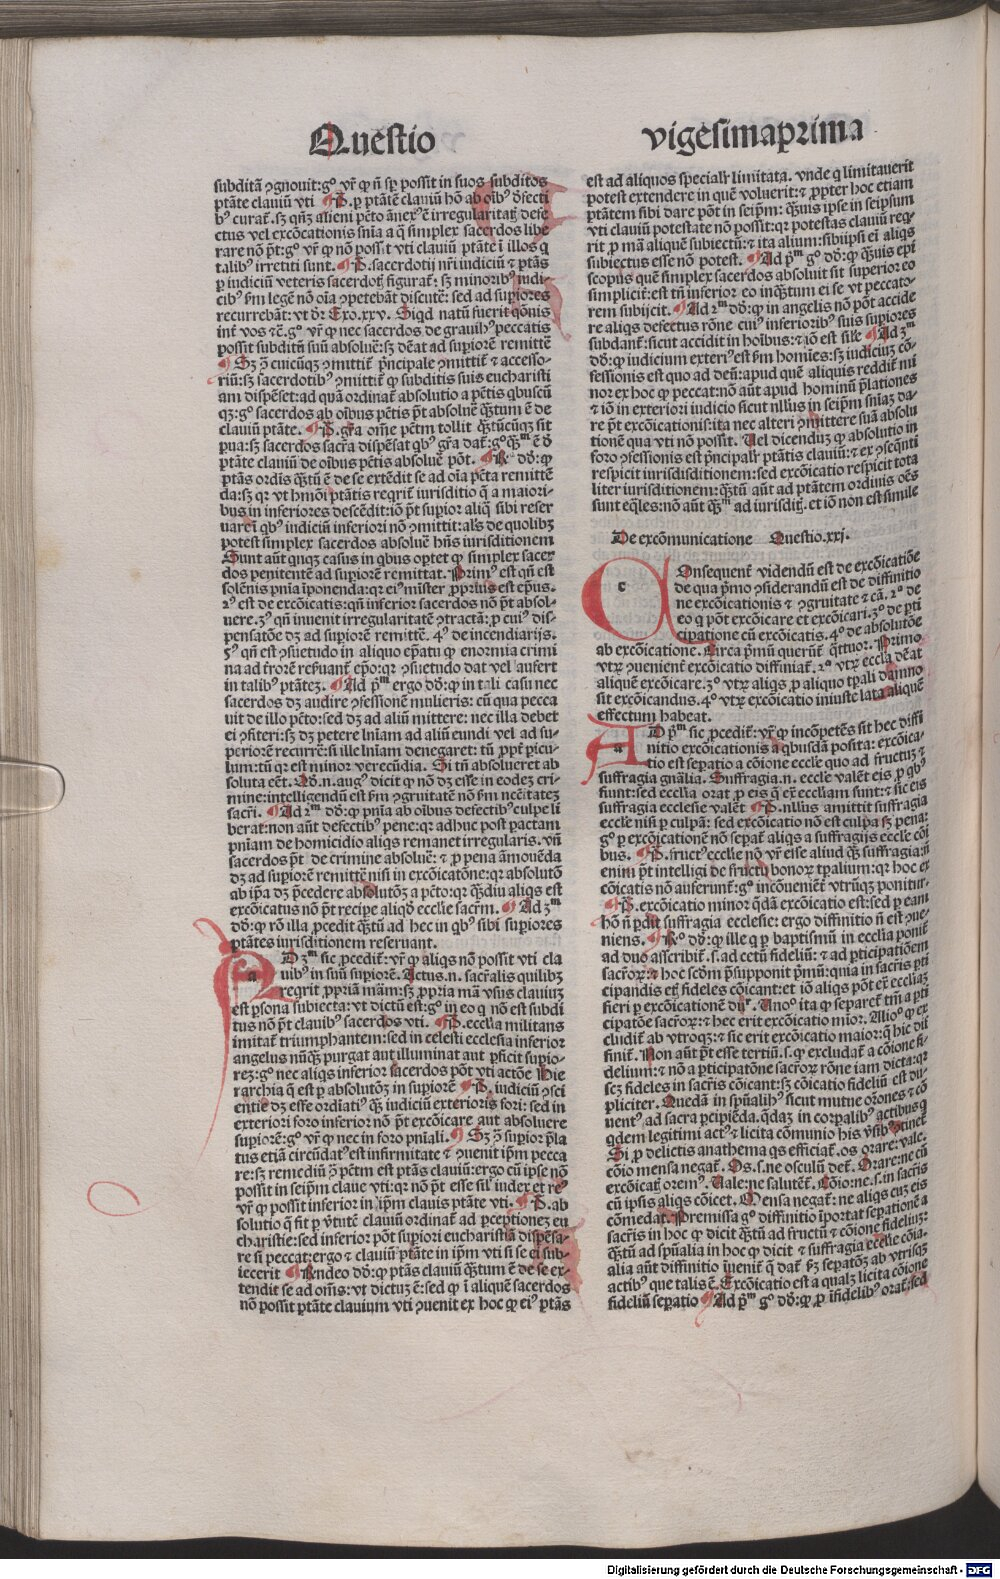 Questio
vigesimaprima
subditã ꝯgnouit:gº vr̃ ꝙ ñ sp̱ possit in suos subditos
ptãte clauiũ vti ¶ P. ꝑ ptãtẽ clauiũ hõ ab oĩbꝰ
bꝰ curat̃. sꝫ
ctus vel excõicationis snĩa a q̃ simplex sacerdos libe
rare nõ p̃t:gº vr̃ ꝙ nõ possit vti clauiũ ptãte ĩ illos q
talibꝰ irretiti sunt. ¶ P. sacerdotiũ nr̃i iudiciũ ⁊ ptãs
ꝑ iudiciũ veteris sacerdotꝭ figurat̃: sꝫ minoribꝰ iudi
cibꝰ ẜm legẽ nõ oĩa ꝯpetebãt discutẽ: sed ad supiores
recurrebãt: vt dr̃ Exo.xxv. Siqd natũ fuerit q̃onis
int̃ vos ⁊c̃.gº vr̃ ꝙ nec sacerdos de grauibꝰ peccatis
possit subditũ suũ absoluẽ:sꝫ deƀat ad supiorẽ remittẽ
¶ Sꝫ ꝯ̃ cuicũqꝫ ꝯmittit̃ p̃ncipale ꝯmittit̃ ⁊ accesso-
riũ:sꝫ sacerdotibꝰ ꝯmittit̃ ꝙ subditis suis eucharisti
am dispẽset:ad quã ordinat̃ absolutio a pctĩs qbuscũ
qꝫ:gº sacerdos ab oĩbus pctĩs p̃t absoluẽ q̃ꝫtum ẽ de
clauiũ ptãte. ¶ P. gr̃a oẽm pctm tollit q̃ꝫtũcũqꝫ sit
pua:sꝫ sacerdos sacr̃a dispẽsat qbꝰ gr̃a dat̃:gº
ptãte clauiũ de oĩbus pctĩs absoluẽ põt. ¶ R̃. dõ:ꝙ
ptãs ordĩs q̃ꝫtũ ẽ de se extẽdit se ad oĩa pctã remittẽ
da:sꝫ qr vt hmõi ptãtis reqrit̃ iurisditio q̃ a maiori-
bus in inferiores descẽdit:iõ p̃t supior aliq̃ sibi reser
uare ĩ qbꝰ iudiciũ inferiori nõ ꝯmittit:al̃s de quolibꝫ
potest simplex sacerdos absoluẽ hñs iurisditionem
Sunt aũt qnqꝫ casus in qbus optet ꝙ simplex sacer
dos penitentẽ ad supiorẽ remittat. Primꝰ est qñ est
solẽnis pñia ĩponenda:qr eiꝰ mĩster ꝓprius est epũs.
2ꝰ est de excõicatis:qñ inferior sacerdos nõ p̃t absol-
uere.3ꝰ qñ inuenit irregularitatẽ ꝯtractã:ꝓ cuiꝰ dis-
pensatõe dꝫ ad supiorẽ remittẽ. 4ꝰ de incendiarijs.
5ꝰ qñ est ꝯsuetudo in aliquo epatu ꝙ enormia crimi
na ad t̃rorẽ reẜuant̃ epõ:qr ꝯsuetudo dat vel aufert
in talibꝰ ptãteꝫ. ¶ Ad p̃ᵐ ergo dõ:ꝙ in tali casu nec
sacerdos dꝫ audire ꝯfessionẽ mulieris: cũ qua pecca
uit de illo pctõ:sed dꝫ ad aliũ mittere: nec illa debet
ei ꝯfiteri:sꝫ dꝫ petere lñiam ad aliũ eundi vel ad su-
periorẽ recurrẽ:si ille lñiam denegaret: tũ ꝓpt̃ picu-
lum:tũ qr est minor verecũdia. Si tñ absolueret ab
soluta eẽt. Qõ.n.augꝰ dicit ꝙ nõ dꝫ esse in eodeꝫ cri-
mine:intelligendũ est ẜm ꝯgruitatẽ nõ ẜm ncc̃itatẽꝫ
sacr̃i. ¶ Ad 2ᵐ dõ:ꝙ pñia ab oĩbus defectibꝰ culpe li
berat:non aũt defectibꝰ pene:qr adhuc post pactam
pñiam de homicidio aliqs remanet irregularis. vñ
sacerdos p̃t de crimine absoluẽ: ⁊ ꝓ pena ãmouẽda
dꝫ ad supiorẽ remittẽ nisi in excõicatõne:qr absolutõ
ab ip̃a dꝫ p̃cedere absolutõꝫ a pctõ:qr q̃ꝫdiu aliqs est
excõicatus nõ p̃t recipe aliqõ ecclĩe sacr̃m. ¶ Ad 3ᵐ
dõ:ꝙ rõ illa ꝓcedit q̃ꝫtũ ad hec in qbꝰ sibi supiores
ptãtes iurisditionem reseruant.
a
D 3ᵐ sic ꝓcedit̃: vr̃ ꝙ aliqs nõ possit vti cla
uibꝰ in suũ supiorẽ. Actus.n. sacr̃alis quilibꝫ
reqrit ꝓpriã mãm:sꝫ ꝓpria mã vsus clauiuꝫ
est ꝑsona subiecta: vt dictũ est:gº in eo q nõ est subdi
tus nõ p̃t clauibꝰ sacerdos vti. ¶ P. ecclĩa militans
imitat̃ triumphantem:sed in celesti ecclesia inferior
angelus nũqꝫ purgat aut illuminat aut ꝑficit supio-
reꝫ:gº nec aliqs inferior sacerdos põt vti actõe hie
rarchia q̃ est ꝑ absolutõꝫ in supiorẽ ¶ P. iudiciũ ꝯsci
entie dꝫ esse ordĩatiꝰ q̃ꝫ iudiciũ exterioris fori: sed in
exteriori foro inferior nõ p̃t excõicare aut absoluere
supiorẽ:gº vr̃ ꝙ nec in foro pñiali. ¶ Sꝫ ꝯ̃ supior p̃la
tus etiã circũdatꝰ est infirmitate ⁊ ꝯuenit ip̃m pecca
re:sꝫ remediũ ꝯ̃ pctm est ptãs clauiũ:ergo cũ ipse nõ
possit in seip̃m claue vti:qr nõ p̃t esse sil̃ iudex et reꝰ
vr̃ ꝙ possit inferior in ip̃m clauis ptãte vti. ¶ P. ab
solutio q̃ fit ꝑ v̓tutẽ clauiũ ordinat̃ ad ꝑceptioneꝫ eu
charistie:sed inferior põt supiori eucharistiã dispẽsa-
re si peccat:ergo ⁊ clauiũ ptãte in ip̃m vti si se ei sub-
iecerit ¶ Rñdeo dõ:ꝙ ptãs clauiũ q̃ꝫtum ẽ de se ex-
tendit se ad oẽs: vt dictuꝫ ẽ:sed ꝙ ĩ aliquẽ sacerdos
nõ possit ptãte clauium vti ꝯuenit ex hoc ꝙ eiꝰ ptãs
est ad aliquos specialr̃ limitata. vnde q limitauerit
potest extendere in quẽ voluerit:⁊ ꝓpter hoc etiam
ptãtem sibi dare põt in seip̃m: q̃ꝫuis ipse in seipsum
vti clauiũ potestate nõ possit:qr potestas clauiũ req-
rit ꝓ mã aliquẽ subiectũ:⁊ ita alium:sibiipsi ei aliqs
subiectus esse nõ potest. ¶ Ad p̃ᵐ gº dõ:ꝙ q̃ꝫuis epi
scopus quẽ simplex sacerdos absoluit sit superior eo
simplicit̃:est tñ inferior eo inq̃ꝫtum ei se vt peccato-
rem subijcit. ¶ Ad 2ᵐ dõ:ꝙ in angelis nõ põt accide
re aliqs defectus rõne cuiꝰ inferioribꝰ suis supiores
subdant̃:sicut accidit in hoĩbus:⁊ iõ est sil̃e ¶ Ad 3ᵐ
dõ:ꝙ iudicium exteriꝰ est ẜm homĩes:sꝫ iudiciuꝫ cõ-
fessionis est quo ad deũ:apud quẽ aliquis reddit̃ mi
nor ex hoc ꝙ peccat:nõ aũt apud hominũ p̃lationes
⁊ iõ in exteriori iudicio sicut nllus in seip̃m sniaꝫ da-
re p̃t excõicationis:ita nec alteri ꝯmittere suã absolu
tionẽ qua vti nõ possit. Vel dicenduꝫ ꝙ absolutio in
foro ꝯfessionis est p̃ncipalr̃ ptãtis clauiũ:⁊ ex ꝯseq̃nti
respicit iurisdisditionem:sed excõicatio respicit tota
liter iurisditionem:q̃ꝫtũ aũt ad ptãtem ordinis oẽs
sunt eq̃les:nõ aũt q̃ꝫᵐ ad iurisdig̃. et iõ non est simile
De excõmunicatione Questio.xxj.
c
Onsequent̃ videndũ est de excõicatiõe
de qua p̃mo ꝯsiderandũ est de diffinitio
ne excõicationis ⁊ ꝯgruitate ⁊ cã. 2º de
eo q põt excõicare et excõicari.3º de pti
cipatione cũ excõicatis. 4º de absolutõe
ab excõicatione. Circa p̃mũ querũt̃ q̃ttuor. Primo
vtꝝ ꝯuenient̃ excõicatio diffiniat̃. 2º vtꝝ eccl̃a deƀat
aliquẽ excõicare.3º vtꝝ aliqs ꝓ aliquo tp̃ali damno
sit excõicandus.4º vtꝝ excõicatio iniuste lata aliquẽ
effectum habeat.
a
D p̃ᵐ sic ꝓcedit̃: vr̃ ꝙ incõpetẽs sit hec diffi
nitio excõicationis a qbusdã posita: excõica-
tio est sepatio a cõione eccl̃e quo ad fructuꝫ ⁊
suffragia gñalia. Suffragia.n. eccl̃e valẽt eis ꝓ qbꝰ
fiunt:sed ecclĩa orat ꝓ eis q̃ ex̃ ecclĩam sunt:⁊ sic eis
suffragia ecclesie valẽt ¶ P. nullus amittit suffragia
eccl̃e nisi ꝑ culpã: sed excõicatio nõ est culpa sꝫ pena:
gº ꝑ excõicationẽ nõ sepat̃ aliqs a suffragijs eccl̃e cõi
bus. ¶ P. fructꝰ ecclĩe nõ vr̃ esse aliud q̃ꝫ suffragia:ñ
enim p̃t intelligi de fructu bonoꝝ tp̃alium:qr hoc ex
cõicatis nõ auferunt̃:gº incõueniẽt̃ vtrũqꝫ ponitur.
¶ P. excõicatio minor q̃dã excõicatio est:sed ꝑ eam
hõ ñ ꝑdit suffragia ecclesie: ergo diffinitio ñ est ꝯue-
niens. ¶ R̃º dõ:ꝙ ille q ꝑ baptismũ in ecclĩa ponit̃
ad duo asscribit̃.s.ad cetũ fideliũ: ⁊ ad pticipationẽm
sacr̃oꝝ:⁊ hoc scõm p̃supponit p̃mũ:quia in sacr̃is pti
cipandis etꝫ fideles cõicant:et iõ aliqs põt ex̃ ecclĩaꝫ
fieri ꝑ excõicationẽ duꝑ̃r. Vnoº ita ꝙ separet̃ tm̃ a pti
cipatõe sacr̃oꝝ:⁊ hec erit excõicatio mior. Alioº ꝙ ex
cludit̃ ab vtroqꝫ:⁊ sic erit excõicatio maior:q̃ hic dif
finit̃. Non aũt p̃t esse tertiũ.s.ꝙ excludat̃ a cõione fi-
delium:⁊ nõ a pticipatõne sacr̃oꝝ rõne iam dicta:qr
scꝫ fideles in sacr̃is cõicant:sꝫ cõicatio fideliũ est du-
pliciter. Quedã in spũalibꝰ sicut mutue orõnes ⁊ cõ
uentꝰ ad sacra ꝑcipiẽda. q̃daꝫ in corpalibꝰ actibusꝗ
qdem legitimi actꝰ ⁊ licita cõmunio his v̓sibꝰ ꝯtinẽt̃
Si ꝓ delictis anathema qs efficiat̃. os orare: vale.
cõio mensa negat̃. Os.s.ne osculũ det̃. Orare:ne cũ
excõicat̃ oremꝰ. Vale:ne salutet̃. Cõio:ne.s.in sacr̃is
cũ ipsis aliqs cõicet. Mensa negat̃: ne aliqs cuꝫ eis
cõmedat. Premissa gº diffinitio ĩportat sepationẽ a
sacr̃is in hoc ꝙ dicit q̃ꝫtũ ad fructũ ⁊ cõione fideliuꝫ:
q̃ꝫtũ ad spũalia in hoc ꝙ dicit ⁊ suffragia eccl̃e cõia.
alia aũt diffinitio ĩuenit̃ q̃ dat̃ ẜꝫ sepatõꝫ ab vtrisqꝫ
actibꝰ que talis ẽ. Excõicatio est a qualꝫ licita cõione
fideliũ sepatio ¶ Ad p̃ᵐ gº dõ:ꝙ ꝓ ĩfidelibꝰ orat̃:sed
Digitalisierung gefördert durch die Deutsche Forschungsgemeinschaft - DFG